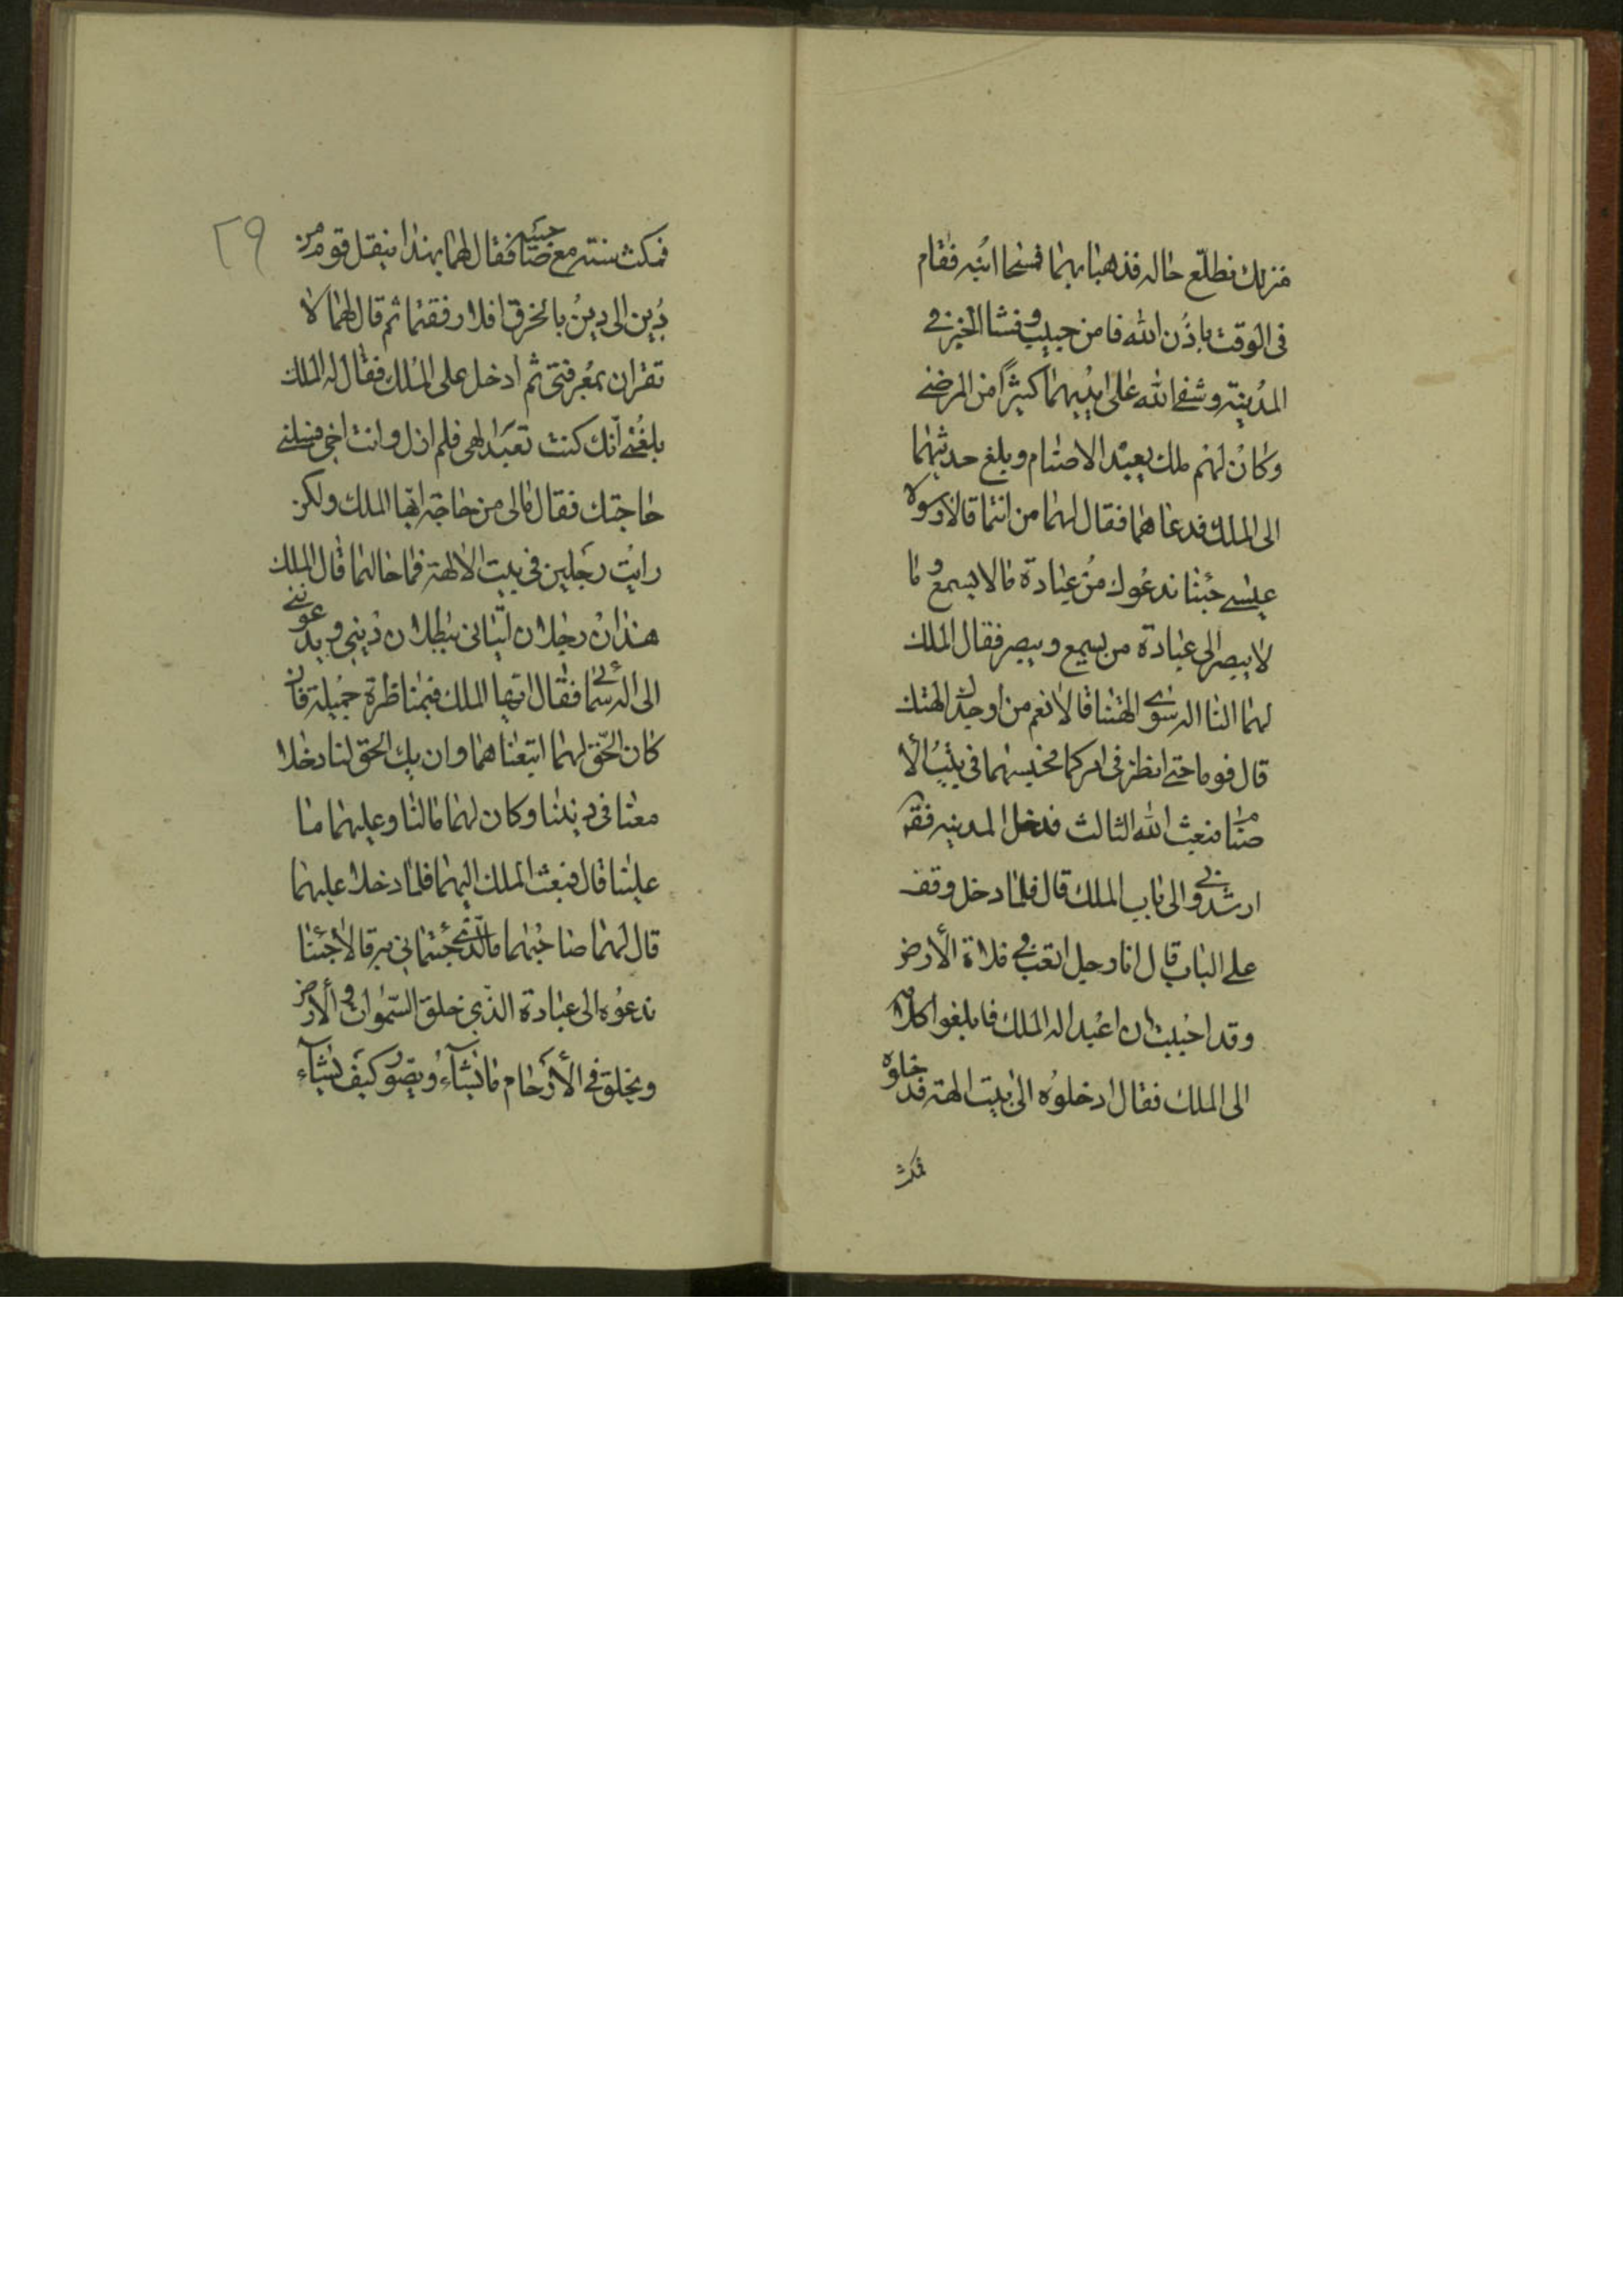 منزلك نطلع حاله فذهبا بهما فمسحا ابنه فقام
فى الوقت باذن الله فامن حبيب و فشا الخبر فى
المدينة و شفى الله على ايديهما كثيراً من المرضى
وكان لهم ملك يعبد الاصنام و بلغ حديثهما
الى الملك فدعاهما فقال لهما من انتما قالا رسولا
عيسى جئنا ندعوك من عبادة ما لا يسمع و ما
لا يبصر الى عبادة من يسمع و يبصر فقال الملك
لهما النا اله سوى الهتنا قالا نعم من اوجدك و الهتك
قال قوما حتى انظر فى امركما فحبسهما فى بيت الا
صنام فبعث الله الثالث فدخل المدينه فقال
ارشدونى الى باب الملك قال فلما دخل وقف
على الباب قال انا رجل اتعبد فى فلاة الأرض
و قد احببت ان اعبد اله الملك فابلغوا كلامه
الى الملك فقال ادخلوه الى بيت الهته فدخلوه
فمكث
٢٩
فمكث سنته مع صاحبيه فقال لهما بهذا ينقل قوم من
دين الى دين بالخرق افلا رفقتما ثم قال لهما لا
تقران بمعرفتى ثم ادخل على الملك فقال له الملك
بلغنى انك كنت تعبد الهى فلم ازل و انت اخى فسلنى
حاجتك فقال مالى من حاجة ايها الملك ولكن
رايت رجلين فى بيت الالهة فما حالهما قال الملك
هذان رجلان اتيانى يبطلان دينى و يدعوننى
الى اله سمائى فقال ايها الملك فمناظرة جميلة فان
كان الحق لهما اتبعناهما و ان يك الحق لنا دخلا
معنا فى ديننا و كان لهما مالنا و عليهما ما
علينا قال فبعث الملك اليهما فلما دخلا عليهما
قال لهما صاحبهما ما الذى جئتمانى به قالا جئنا
ندعوه الى عبادة الذى خلق السموات و الأرض
و يخلق فى الأرحام ما يشآء و يصور كيف يشآء